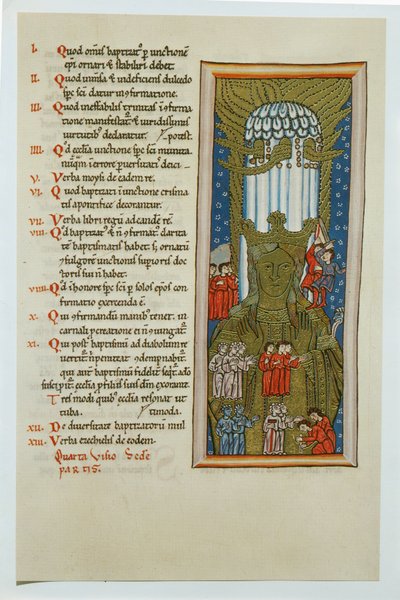 I. Quod omnis baptizatꝰ ꝑ unctionē
ep̄i ornari & stabiliri debet.
II. Quod inmsa & indeficiens dulcedo
spc̄ sc̄i datur in ↄfirmatione.
III. Quod ineffabilis trinitas in ↄfirma
tione manifestat̄ & uiridissimis
uirtutib; declaratur. ypotest.
IIII. Qd̄ ecclīa unctione spc̄ sc̄i munita
nūq̄m in errore ꝑuersitatis deici
V. Verba moysi de eadem re.
VI. Quod baptizati in unctione crisma
tis a pontifice decorantur.
VII. Verba libri regū ad eandē rē.
VIII. Qd̄ baptizatꝰ & n̄ ↄfirmatꝰ clarita
tē baptismatis habet sꝫ ornatū
& fulgorē unctionis supioris doc
toris sui n̄ habet.
VIIII. Qd̄ in honore spc̄ sc̄i ꝑ solos ep̄os con
firmatio exercenda ē.
X. Qui ↄfirmandū manibꝰ tenet in
carnali ꝓcreatione ei n̄ iungat̄.
XI. Qui post baptismū ad diabolum re
uertit̄ si n̄ penitet ↄdempnabit̄.
qui aut̄ baptismū fideliter
suscipit̄ ecclīa ꝓ filiis suis dm̄ exorante
Tres modi quibꝰ ecclīa resonat ut
tuba. ytimoda.
XII. De diuersitate baptizatorū mul
XIII. Verba ezechielis de eodem.
Quarta Visio Sc̄de
partis.